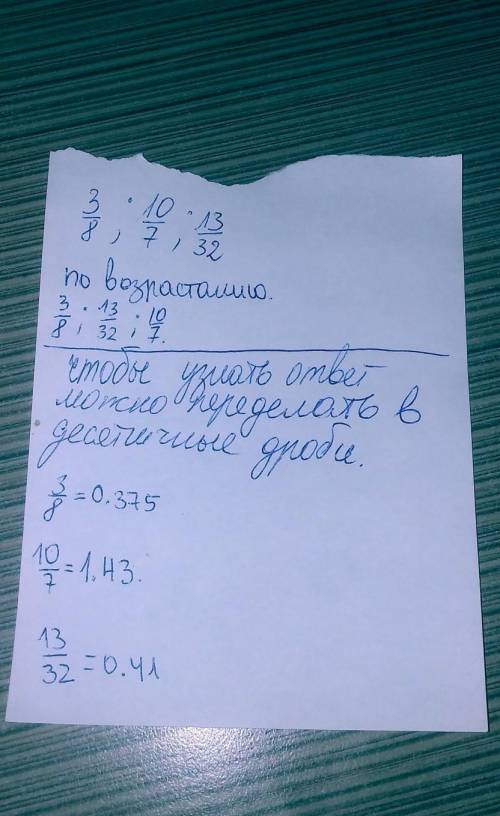 3/8 ; 10/7 ; 13/32
по возрастанию.
3/8 ; 13/32 ; 10/7.
чтобы узнать ответ
можно переделать в
десятичные дроби.
3/8 = 0.375
10/7 = 1.43.
13/32 = 0.41